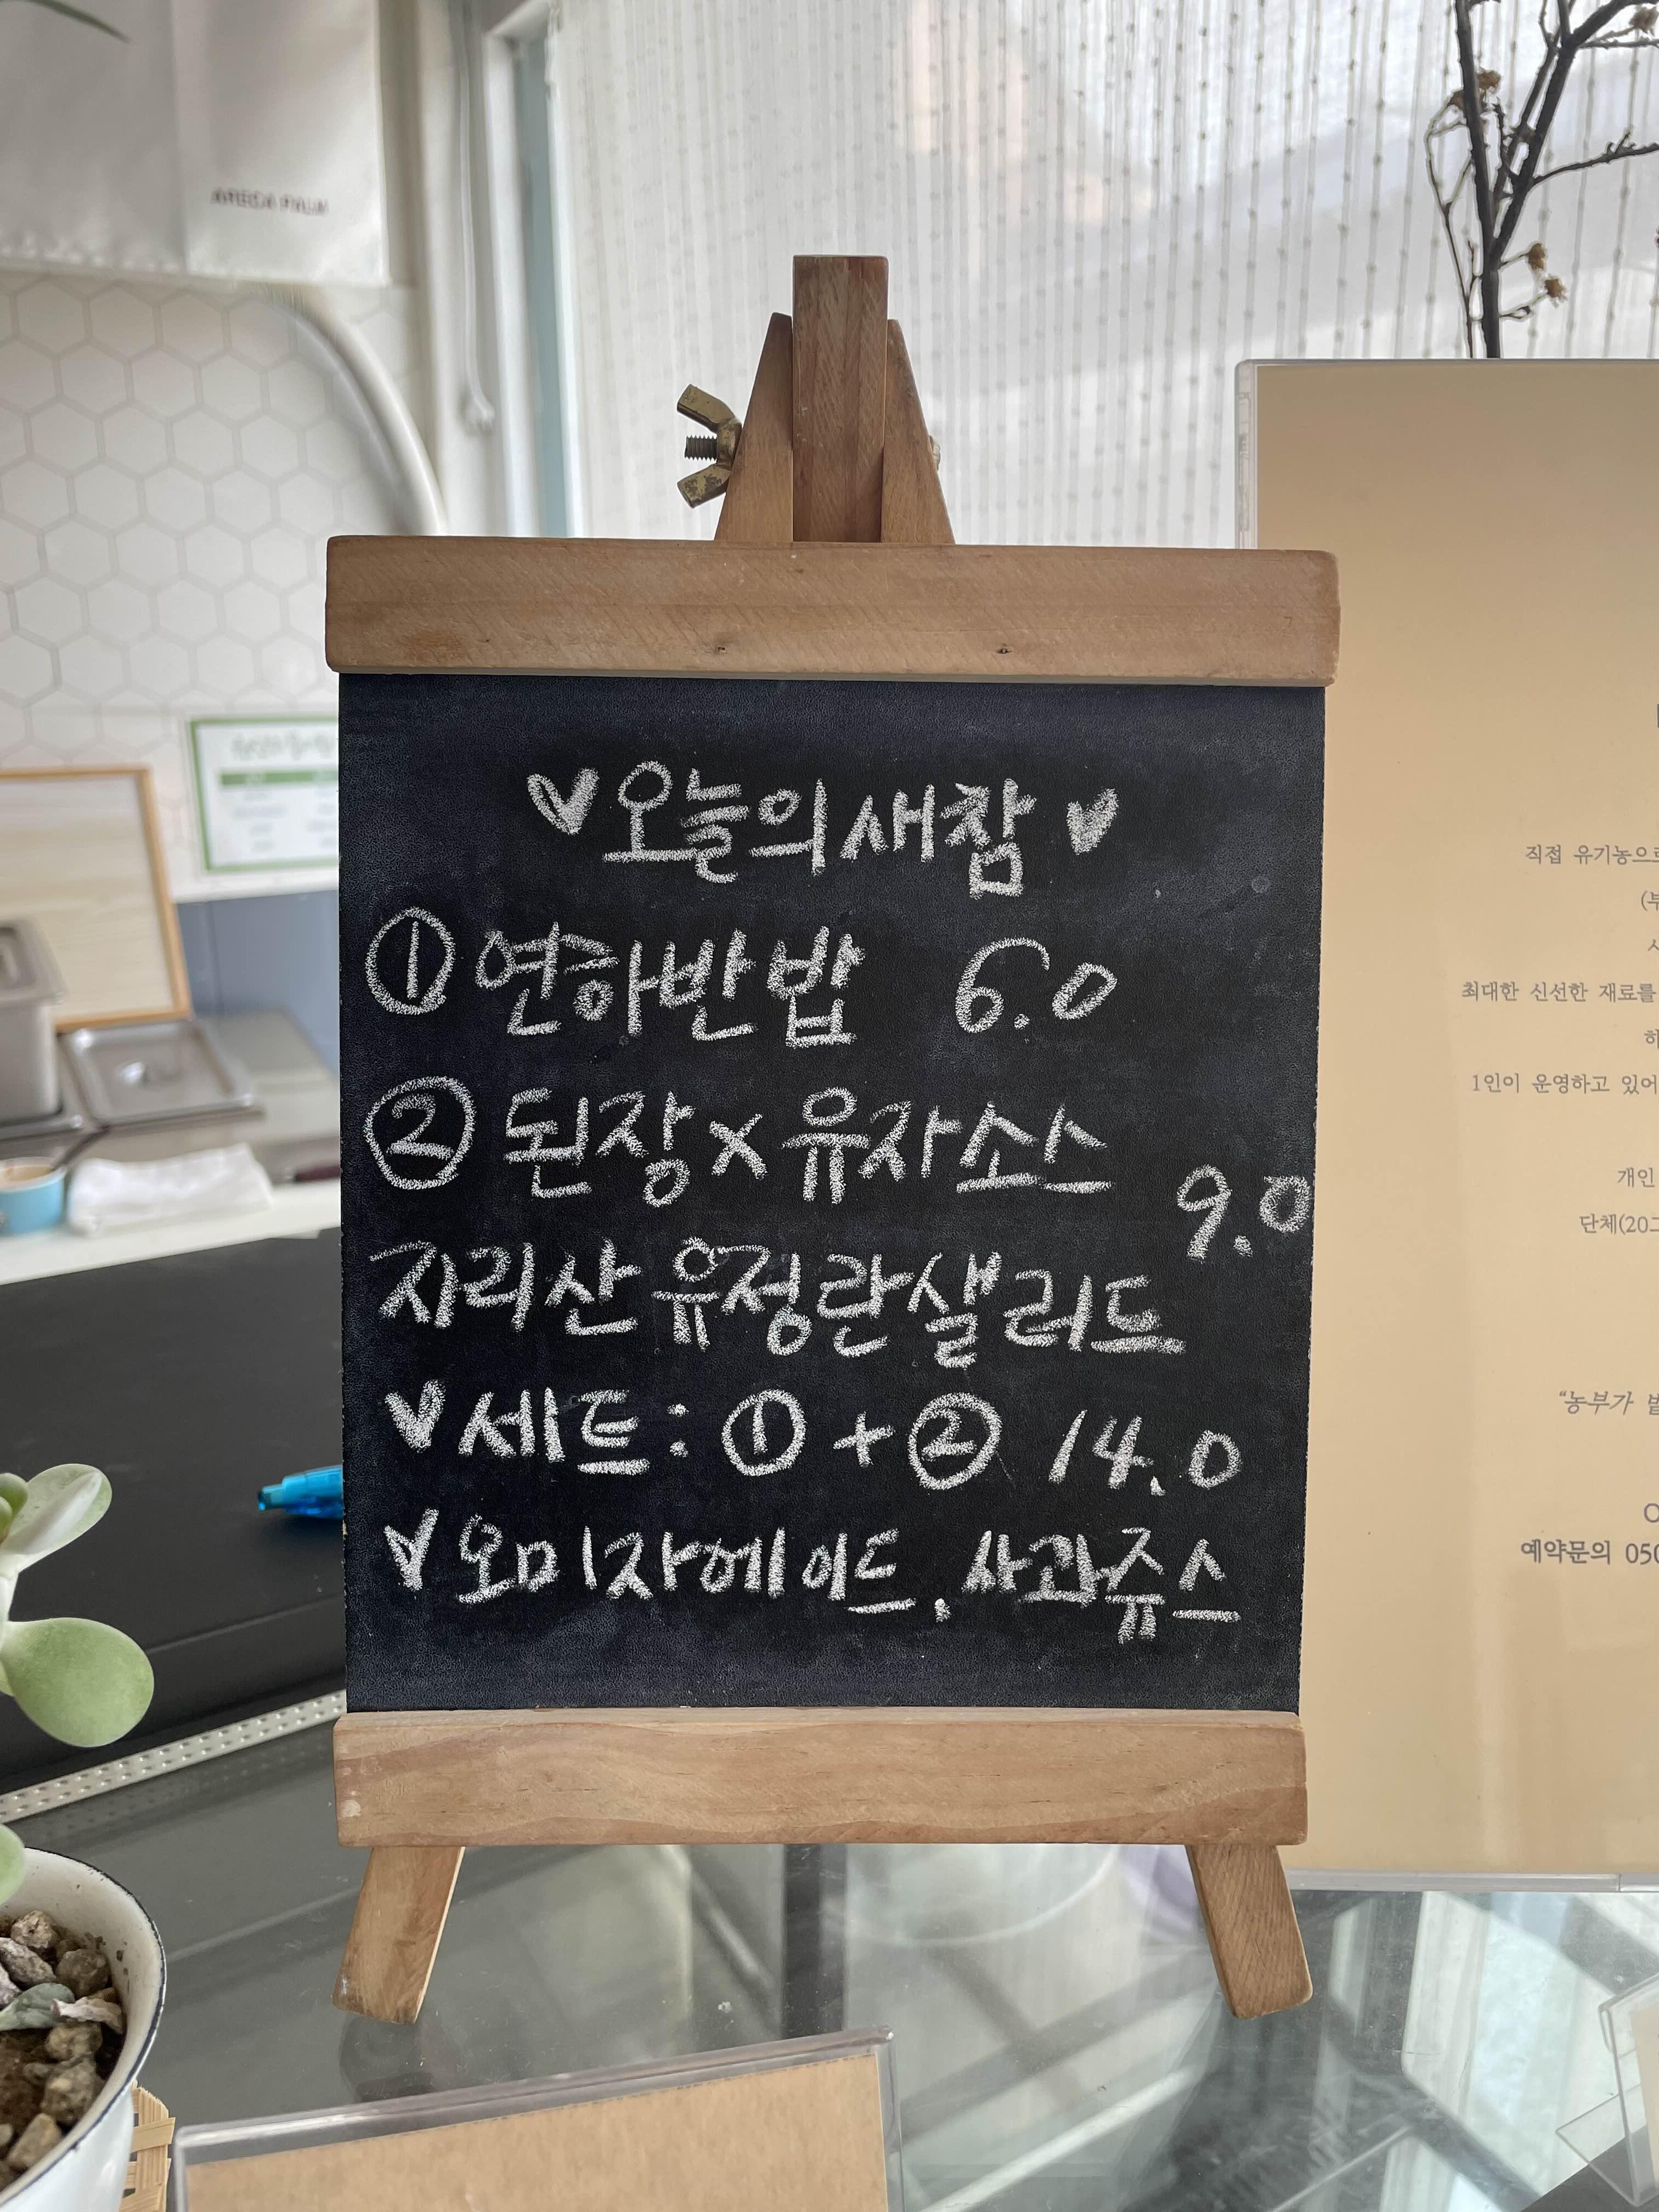 AREGA PALM
♥오늘의새참♥
① 연하반밥 6.0
② 된장×유자소스
9.0
지리산 유정란샐러드
♥세트: ①+② 14.0
♥오미자에이드, 사과쥬스
직접 유기농으로
최대한 신선한 재료를
1인이 운영하고 있어
개인
단체(20그
“농부가
예약문의 050